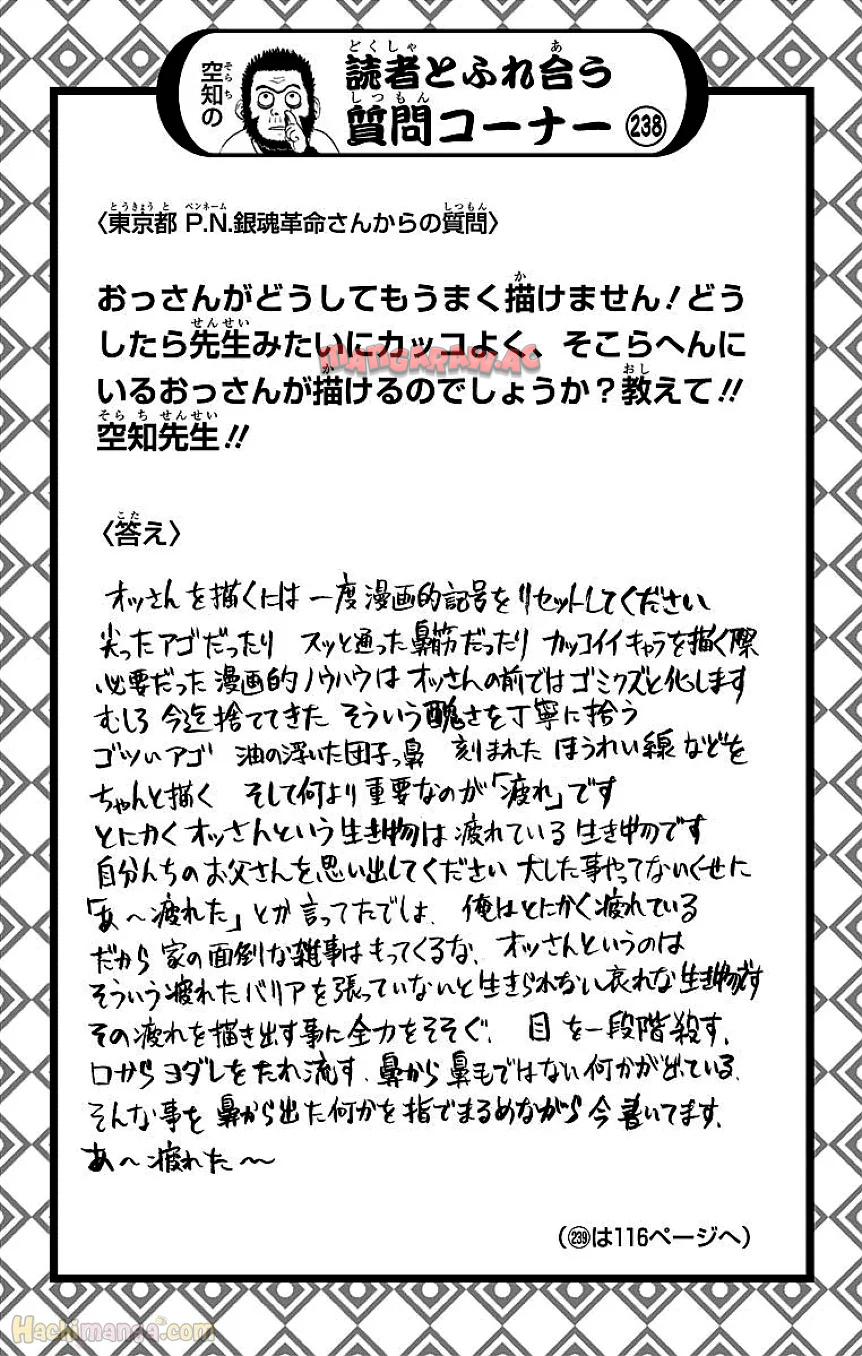 空知の
読者とふれ合う
質問コーナー 238
〈東京都 P.N.銀魂革命さんからの質問〉
おっさんがどうしてもうまく描けません!どう
したら先生みたいにカッコよく、そこらへんに
MANGARAW.AC
いるおっさんが描けるのでしょうか?教えて!!
空知先生!!
〈答え〉
オッさんを描くには 一度漫画的記号をリセットしてください
尖ったアゴだったり スッと通った鼻筋だったり カッコイイキャラを描く際
必要だった漫画的ノウハウは オッさんの前ではゴミクズと化します
むしろ 今迄捨ててきた そういう醜さを丁寧に拾う
ゴツいアゴ 油の浮いた団子っ鼻 刻まれた ほうれい線などを
ちゃんと描く そして何より重要なのが「疲れ」です
とにかくオッさんという生き物は 疲れている 生き物です
自分んちのお父さんを思い出してください 大した事やってないくせに
「あ〜疲れた」とか言ってたでしょ、俺はとにかく疲れている
だから 家の面倒な雑事はもってくるな、オッさんというのは
そういう疲れたバリアを張っていないと生きられない哀れな生き物です
その疲れを描き出す事に全力をそそぐ、目を一段階殺す、
口からヨダレをたれ流す、鼻から鼻毛ではない何かが出ている、
そんな事を 鼻から出た何かを指でまるめながら今書いてます、
あ〜疲れた〜
(239は116ページへ)
Hachimanga.com